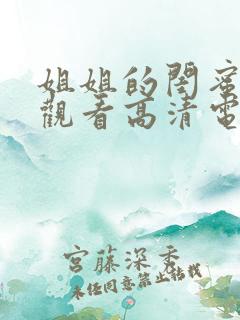 姐姐的閨蜜
觀看高清電
宮藤深秀
未经同意禁止转载